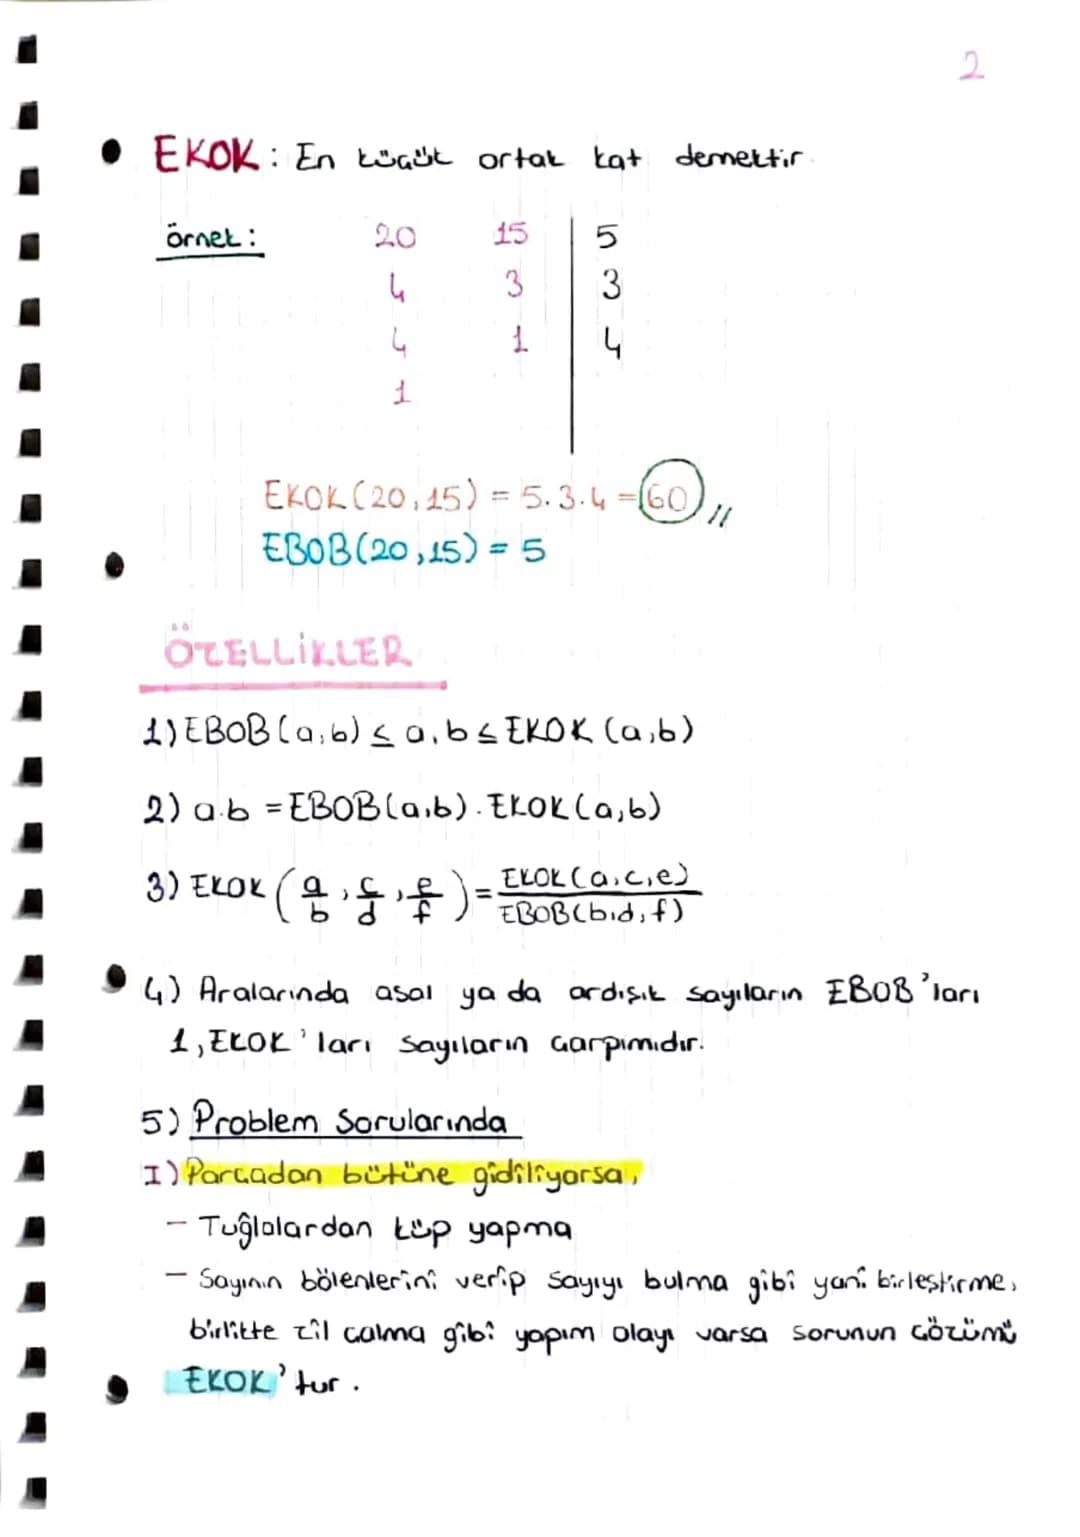 2
EKOK: En küçük ortak kat demektir.
örnek: 20 15 | 5
4 3 | 3
4 1 | 4
1
EKOK(20,15) = 5.3.4 = 60 //
EBOB(20,15) = 5
ÖZELLİKLER
1) EBOB(a,b) ≤ a,b ≤ EKOK(a,b)
2) a.b = EBOB(a,b). EKOK(a,b)
3) EKOK (a/b, c/d, e/f) = EKOK(a,c,e) / EBOB(b,d,f)
4) Aralarında asal ya da ardışık sayıların EBOB'ları
1, EKOK'ları sayıların çarpımıdır.
5) Problem Sorularında
I) Parçadan bütüne gidiliyorsa,
- Tuğlalardan küp yapma
- Sayının bölenlerini verip sayıyı bulma gibi yani birleştirme,
birlikte zil çalma gibi yapım olayı varsa sorunun çözümü
EKOK'tur.